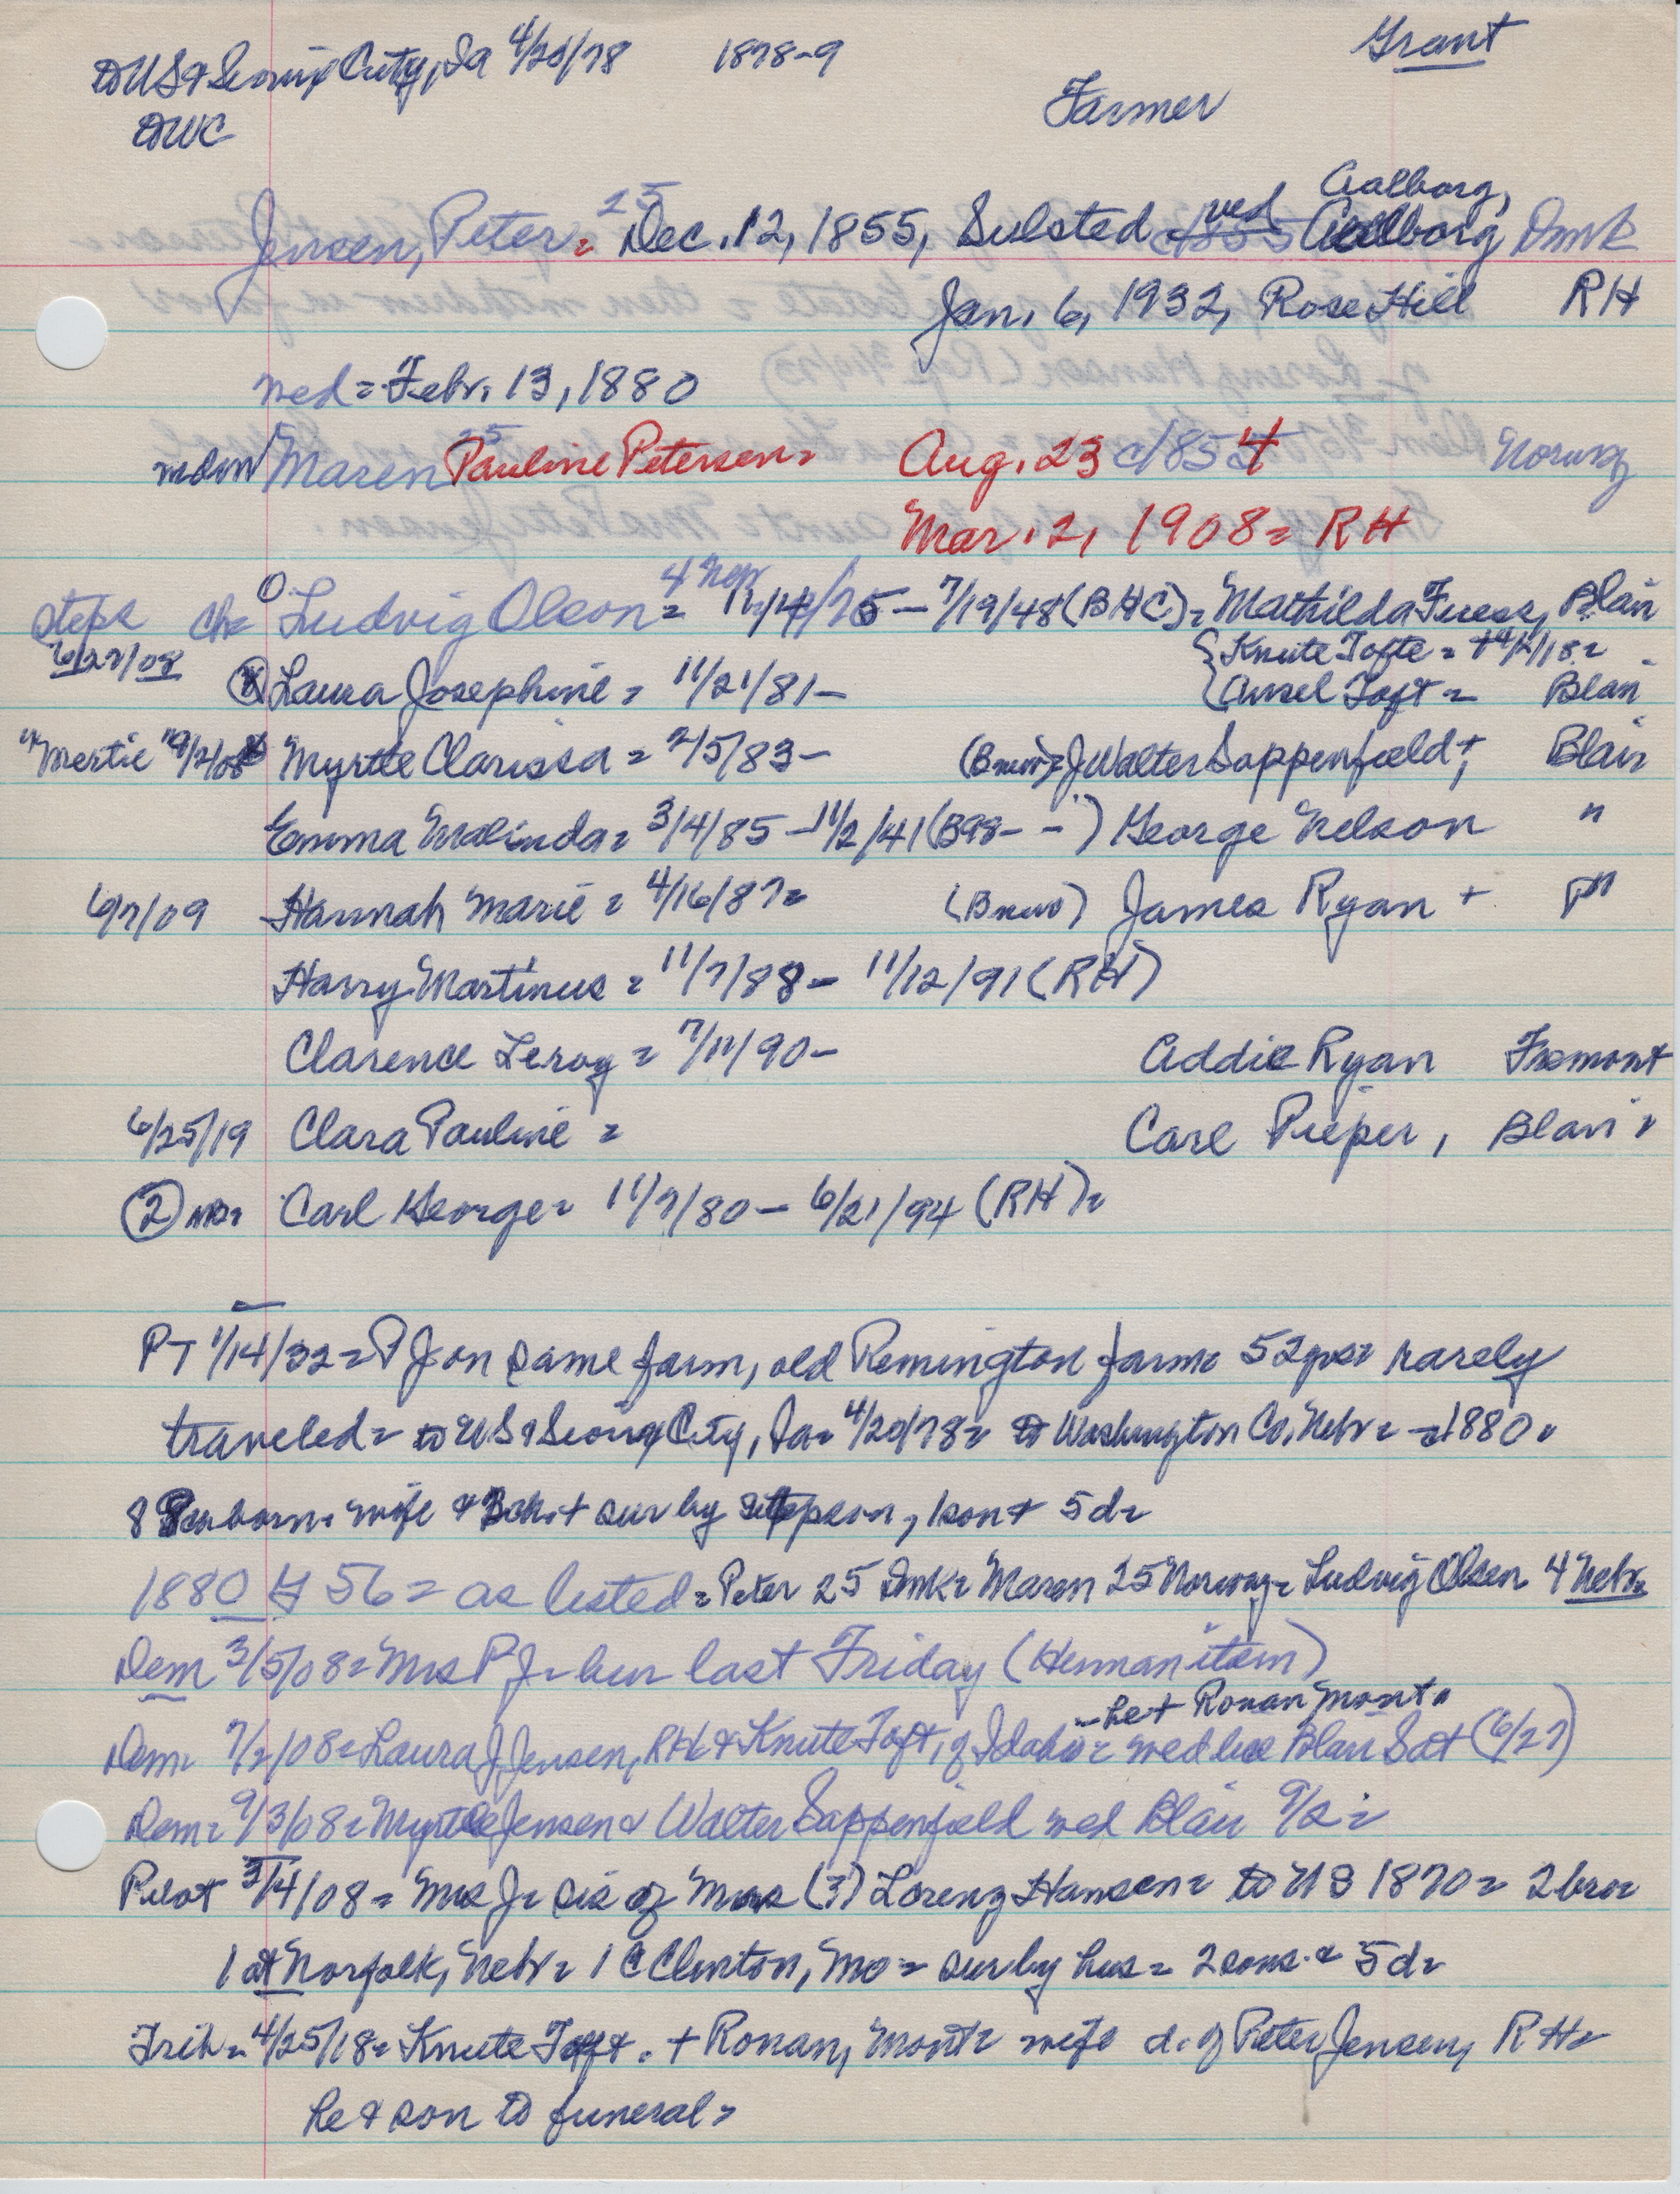 Grant
to US & City, Ia 4/20/78 1878-9
Farmer
DWC
Aalborg,
25 ved
Jensen, Peter = Dec. 12, 1855, Sulsted Aalborg Dmk
Jan. 6, 1932, Rose Hill RH
wed = Febr. 13, 1880
25
Maren Pauline Petersen = Aug. 23 c1854 Norway
Mar. 2, 1908 = RH
4 Neb
steps Ludvig Olson = /75 - 7/19/48 (BHC) = Mathilda Blair
6/27/08 { Knute Tofte =
Laura Josephine = 11/21/81 - { Toft = Blair
"Mertie" 9/2/08 Myrtle Clarissa = 2/5/83 - J Walter Sappenfield +, Blair
Emma Malinda = 3/4/85 - 11/2/41 (B98- -) George Nelson "
6/7/09 Hannah Marie = 4/16/87 = James Ryan + "
Harry Martinus = 11/7/88 - 11/12/91 (RH)
Clarence Leroy = 7/11/90 - Addie Ryan Fremont
6/25/19 Clara Pauline = Carl Pieper, Blair =
(2) Carl George = 11/7/80 - 6/21/94 (RH) =
PT 1/14/32 = PJ on same farm, old Remington farm = 52 yrs = rarely
traveled = to US & City, Ia = 4/20/78 = to Washington Co, Nebr = 1880 =
8 born = wife & + sur by stepson, 1 son + 5 d =
1880 56 = as listed = Peter 25 Dmk = Maren 25 Norway = Ludvig Olsen 4 Nebr =
Dem 3/5/08 = Mrs P J = bur last Friday (Herman item)
- he + Ronan Mont =
Dem = 7/2/08 = Laura J Jensen, RH & Knute Toft, of Idaho = wed Blair Sat (6/27)
Dem = 9/3/08 = Myrtle Jensen & Walter Sappenfield wed Blair 9/2 =
Pilot 3/4/08 = Mrs J = sis of Mrs (?) Lorenz Hansen = to US 1870 = 2 bro =
1 at Norfolk, Nebr = 1 Clinton, Mo = sur by hus = 2 sons & 5 d =
Trib = 4/25/18 = Knute Toft. + Ronan, Mont = wife d. of Peter Jensen, RH =
he & son to funeral =